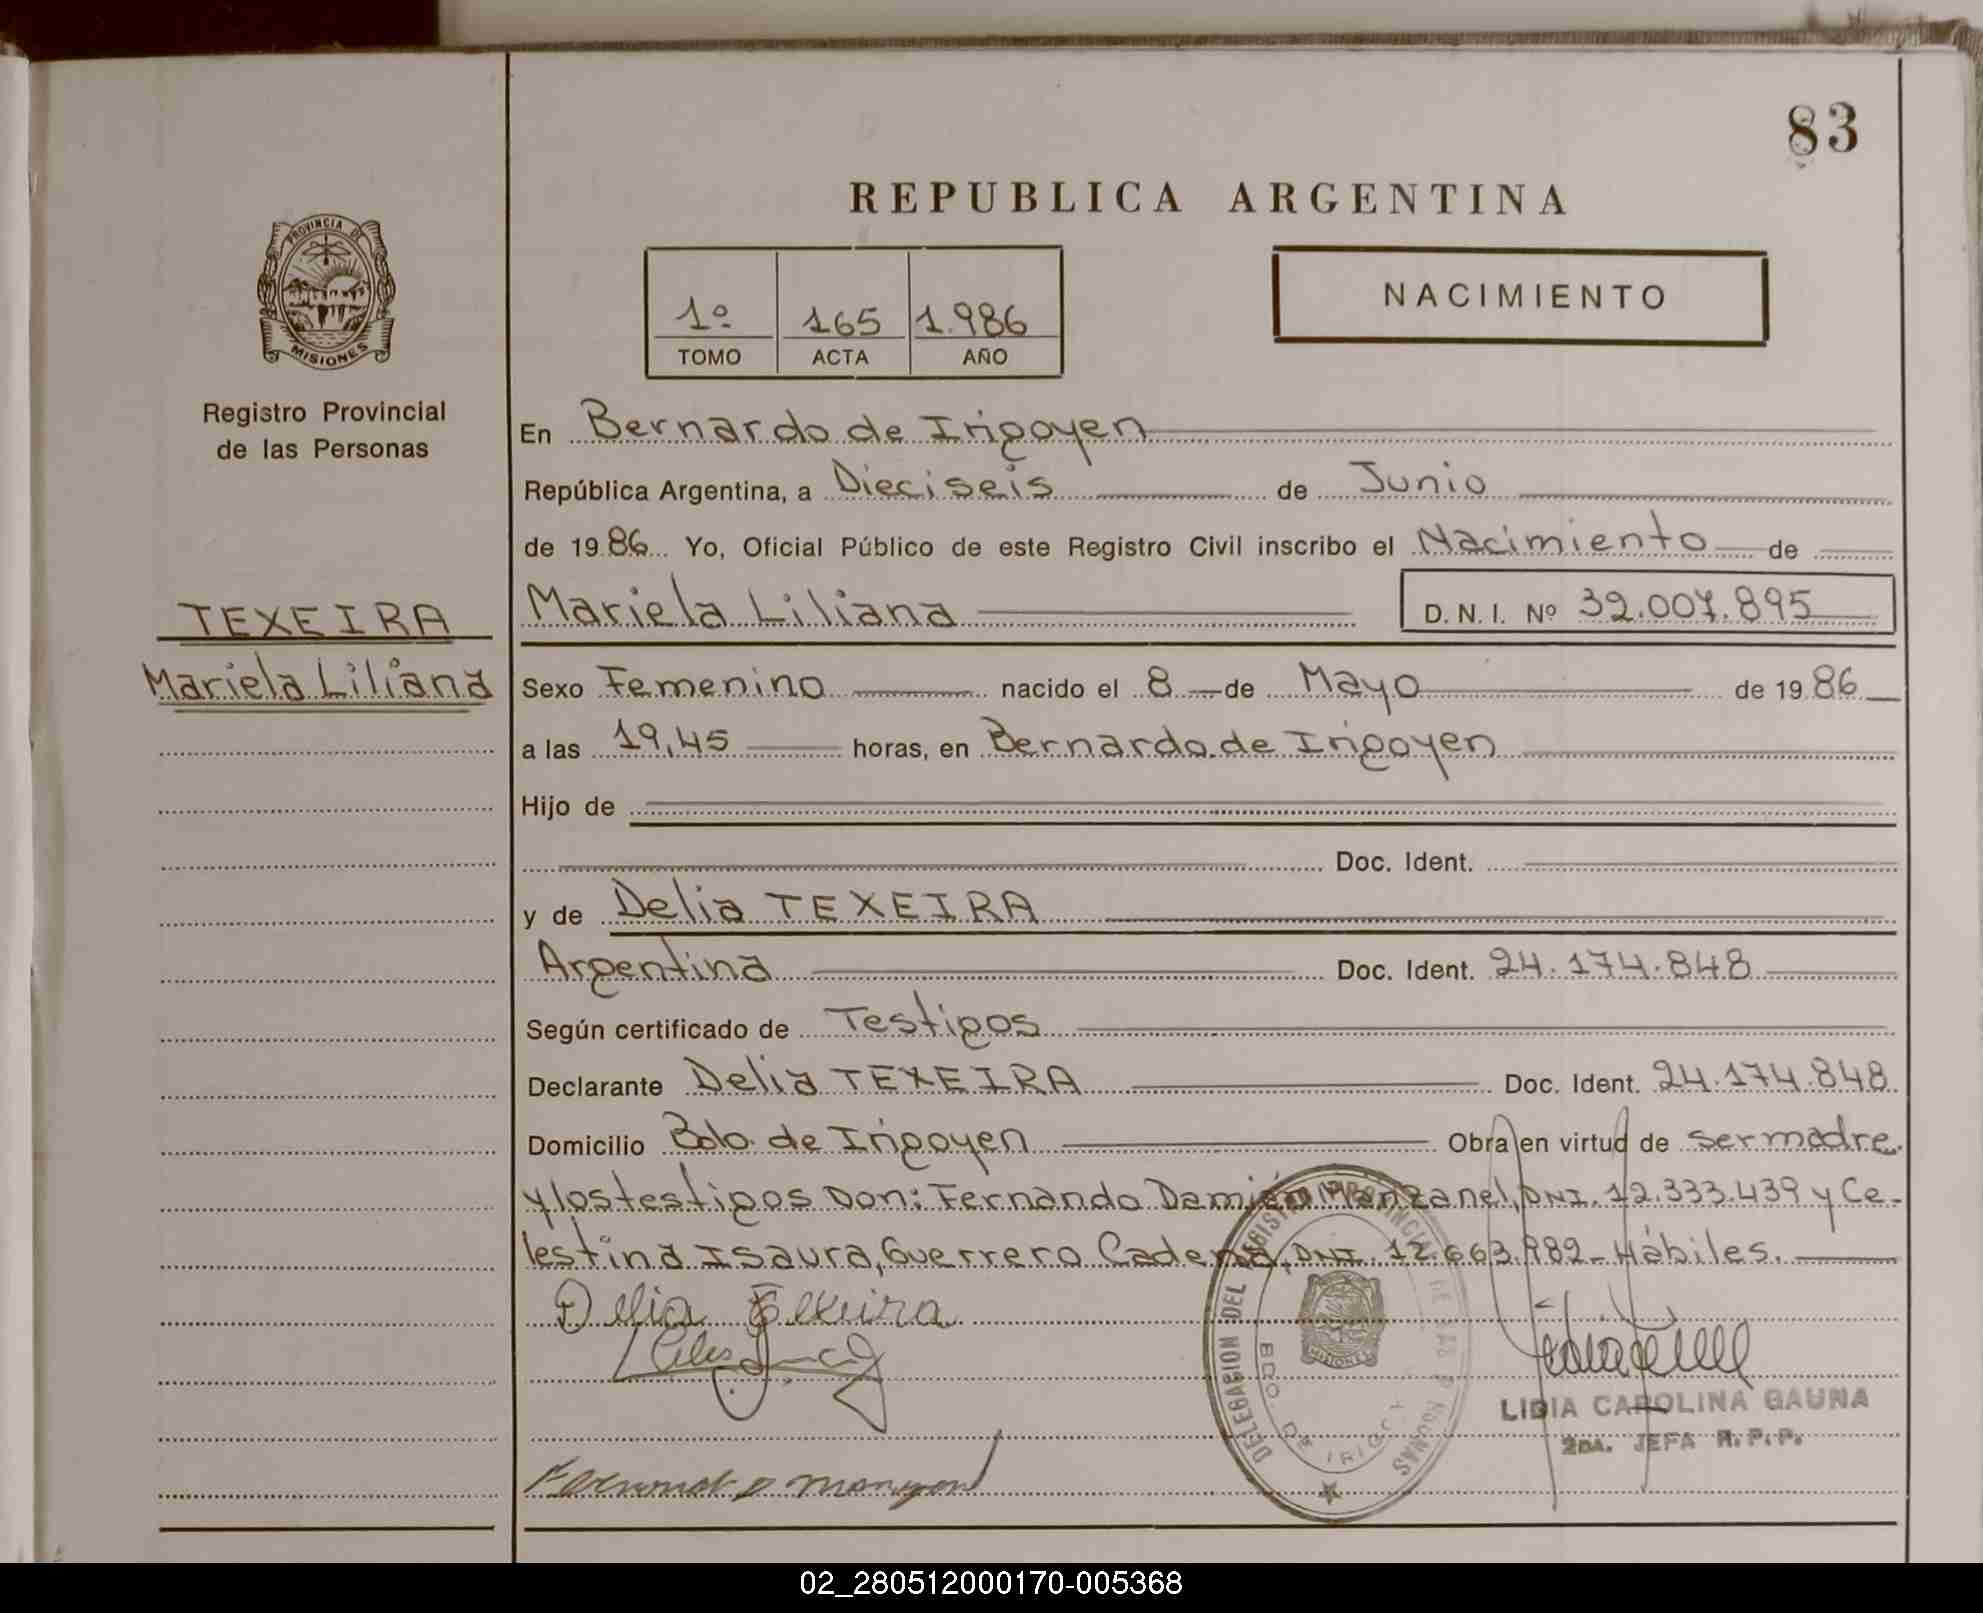 83
REPUBLICA ARGENTINA
PROVINCIA DE
MISIONES
Registro Provincial
de las Personas
1º 165 1.986
TOMO ACTA AÑO
NACIMIENTO
En Bernardo de Irigoyen
República Argentina, a Dieciseis de Junio
de 1986 Yo, Oficial Público de este Registro Civil inscribo el Nacimiento de
TEXEIRA
Mariela Liliana
Mariela Liliana D. N. I. Nº 32.007.895
Sexo Femenino nacido el 8 de Mayo de 1986
a las 19,45 horas, en Bernardo de Irigoyen
Hijo de
Doc. Ident.
y de Delia TEXEIRA
Argentina Doc. Ident. 24.174.848
Según certificado de Testigos
Declarante Delia TEXEIRA Doc. Ident. 24.174.848
Domicilio Bdo. de Irigoyen Obra en virtud de ser madre
y los testigos Don: Fernando Damián Manzanel, DNI. 12.333.439 y Ce-
lestina Isaura, Guerrero Cadena, DNI. 12.663.982 - Hábiles.
Delia Texeira
DELEGACION DEL REGISTRO PROVINCIAL DE LAS PERSONAS
BDO. DE IRIGOYEN
MISIONES
LIDIA CAROLINA GAUNA
2DA. JEFA R.P.P.
Fernando
02_280512000170-005368